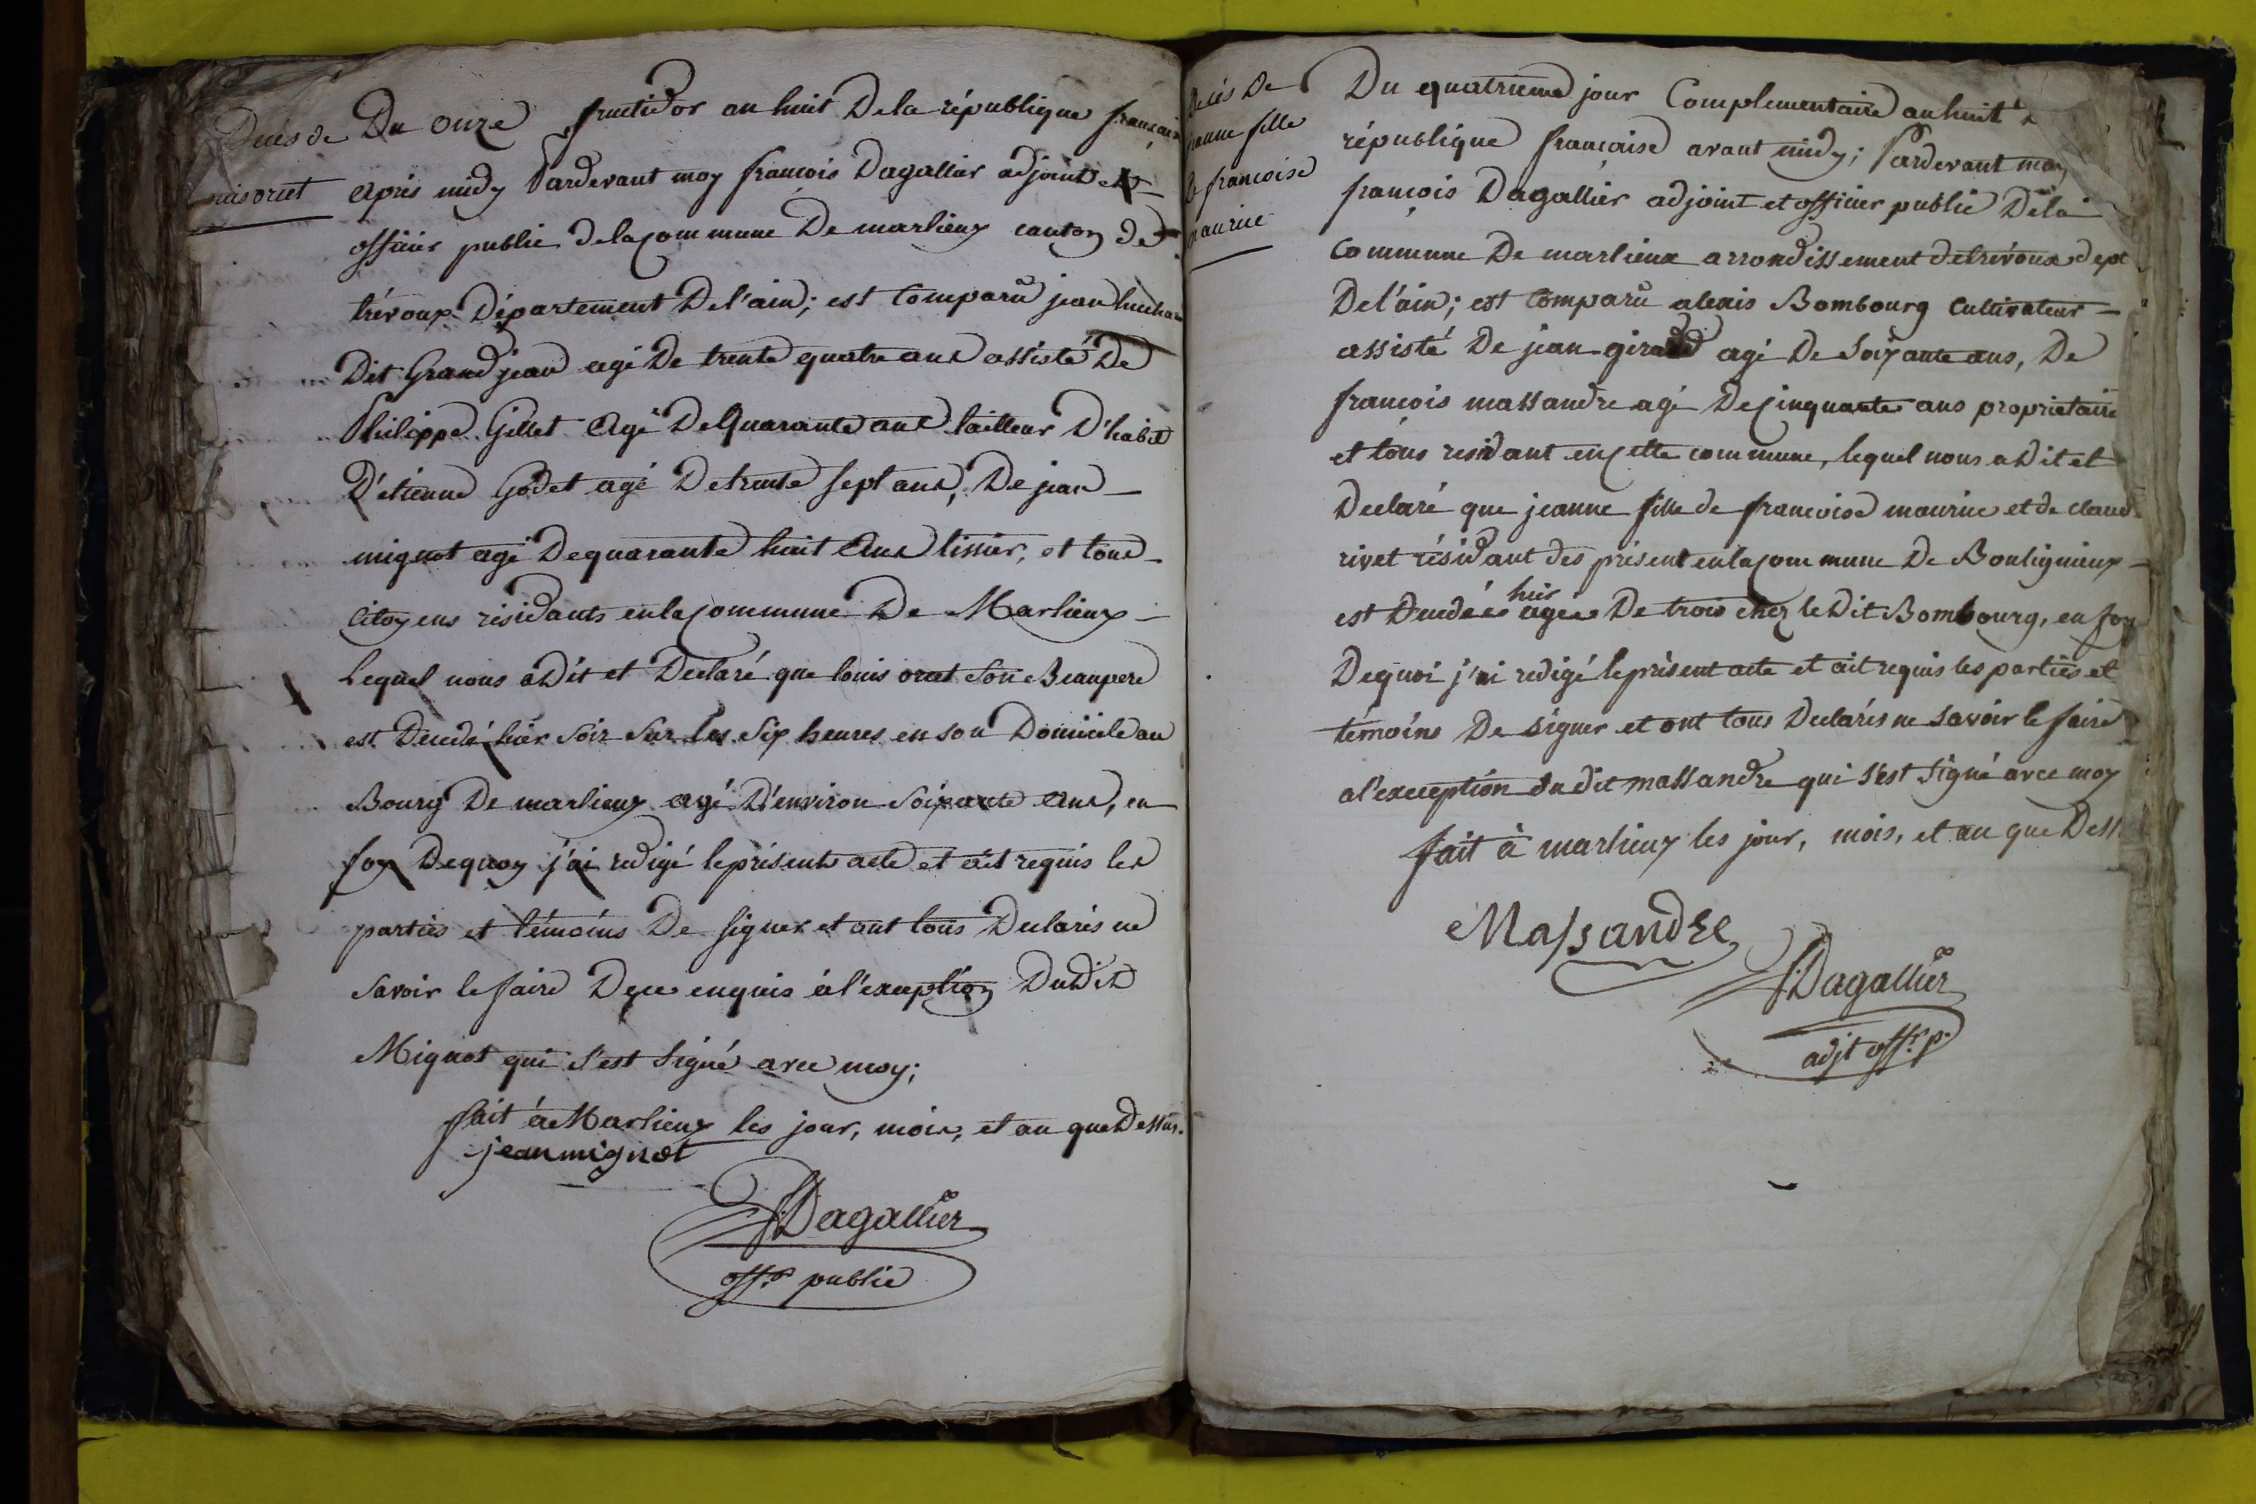 Deces de
Louis orcet
Du onze fructidor an huit De la république française
apres midy Pardevant moy francois Dagallier adjoint et
officier public de la commune De marlieux canton de
trévoux Département De l'ain; est Comparû jean
Dit Grandjean agé De trente quatre ans assisté De
Philippe Gillet agé De Quarante ans tailleur D'habit
D'etienne Godet agé De trente sept ans, De jean
mignot agé De quarante huit ans tissier, et tous
citoyens residants en la commune De Marlieux
Lequel nous a Dit et Declaré que louis orcet son Beaupere
est Decedé hier soir sur les six heures en son Domicile au
Bourg De marlieux agé D'environ soixante ans, en
foy De quoy j'ai redigé le présent acte et ait requis les
parties et témoins De signer et ont tous Declarés ne
savoir le faire De ce enquis à l'exception Dudit
Mignot qui s'est signé avec moy;
fait à Marlieux les jour, mois, et an que Dessus.
jean mignot
f. Dagallier
offr. public
Deces De
jeanne fille
De francoise
maurice
Du quatrieme jour Complementaire an huit
république francaise avant midy; Pardevant moy
françois Dagallier adjoint et officier public De la
commune De marlieux arrondissement de trévoux dept
De l'ain; est comparu alexis Bombourg cultivateur
assisté De jean girard agé De soixante ans, De
francois massandre agé De cinquante ans proprietaire
et tous residant en cette commune, lequel nous a Dit et
Declaré que jeanne fille de francoise maurice et de claude
rivet résidant des présent en la commune De Bouligneux
est Decedée hier agée De trois chez le Dit Bombourg, en foy
De quoi j'ai redigé le présent acte et ait requis les parties et
témoins De signer et ont tous Declarés ne savoir le faire
a l'exception du dit massandre qui s'est signé avec moy
fait à marlieux les jour, mois, et an que Dessus
Massandre
f. Dagallier
adjt offr. p.